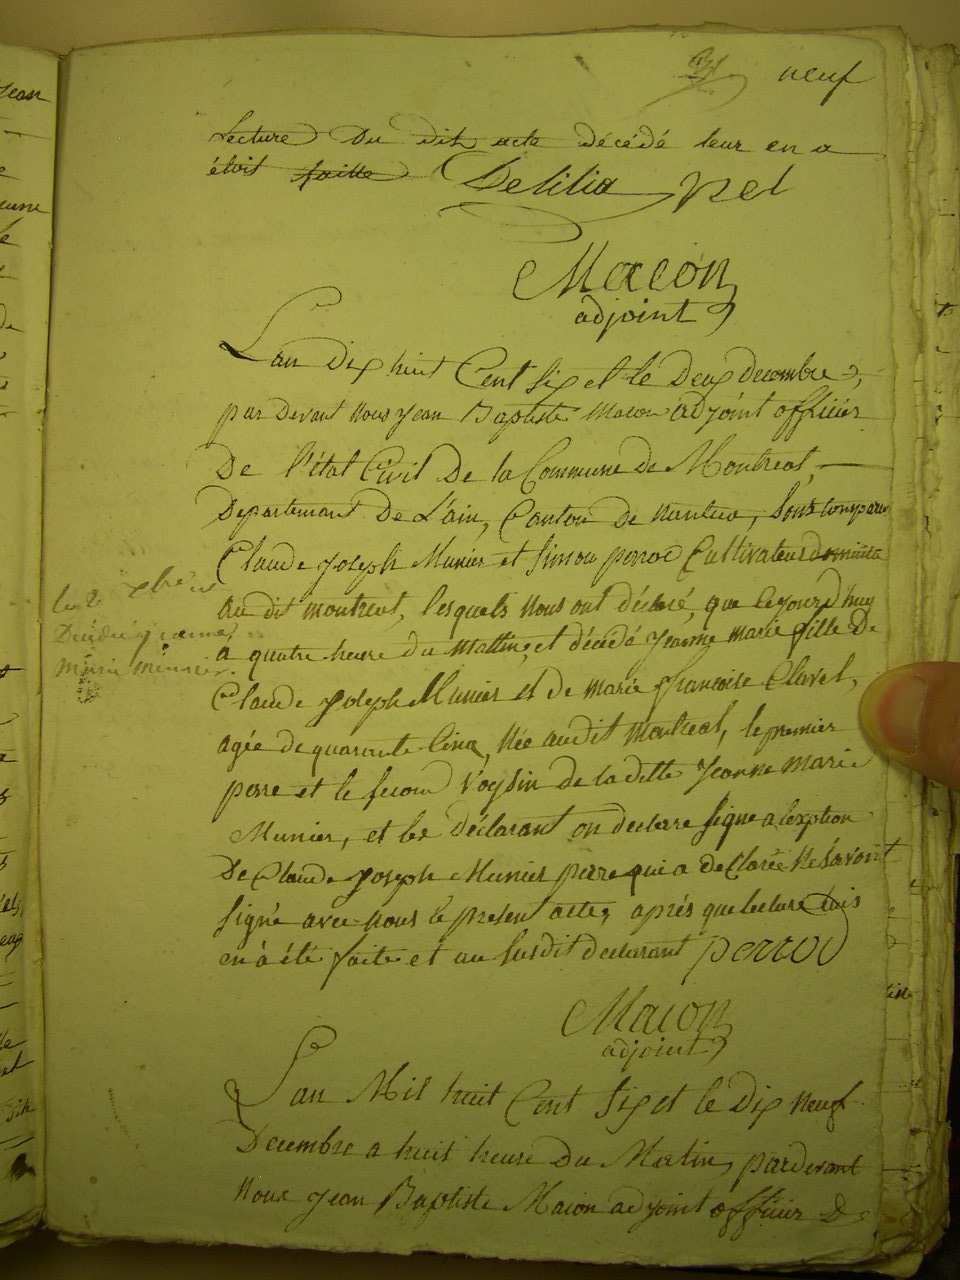 neuf
Lecture Du dit acte décédé leur en a
étoit faitte Delilia Nel
Macon
adjoint
L'an Dix huit Cent Six et le Deux decembre,
par Devant Nous Jean Baptiste Macon adjoint officier
De l'état Civil De la Commune de Montreal,
Departement De L'ain, Canton de Nantua, Sont comparu
Claude Joseph Munier et Simon perrod Cultivateur
au dit montreal, lesquels Nous ont déclaré, que Cejourd'huy
a quatre heure du Mattin, et décédé Jeanne Marie fille De
Claude Joseph Munier et de Marie françoise Clavel,
agée de quarante Cinq, Née audit Montreal, le premier
perre et le second Voysin de la ditte Jeanne Marie
Munier, et les Déclarant on declare signe a lexption
De Claude Joseph Munier perre qui a declarée Ne Savoir
signé avec nous le present acte, après que lecture
en à été faite et au susdit declarant perrod
le 2 xbre
Décédé jeanne
marie meunier.
Macon
adjoint
L'an Mil huit Cent Six et le Dix Neuf
Decembre a huit heure Du Matin, pardevant
Nous Jean Baptiste Macon adjoint officier De